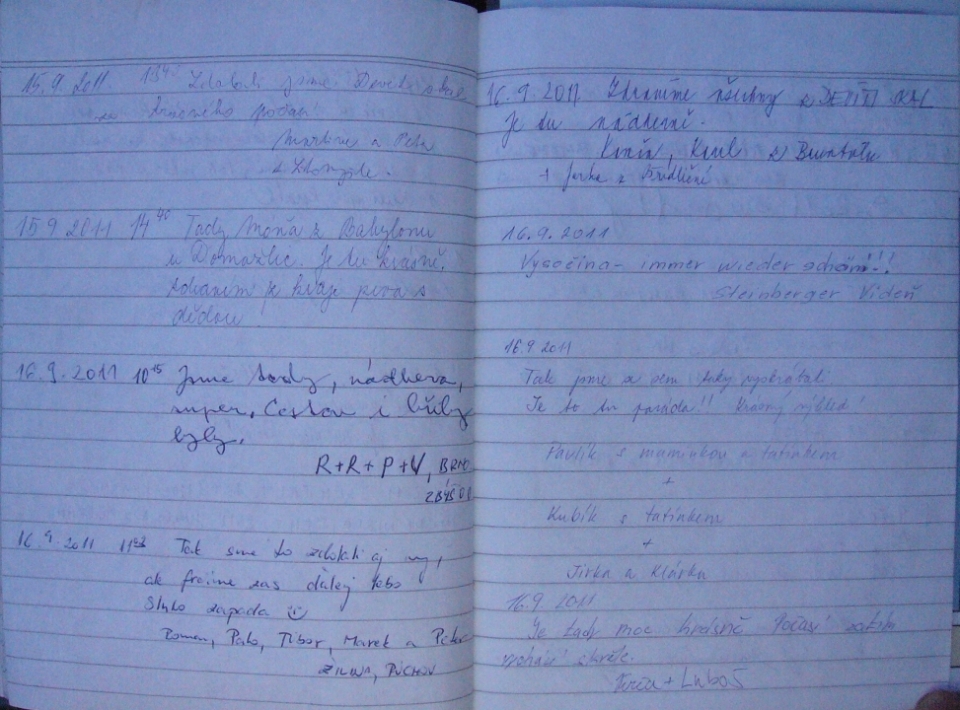 15.9. 2011 13⁴⁵ Zdolali jsme
krásného počasí
Martina a Peťa
15.9.2011 14⁴⁰ Tady Móňa z Babylonu
u Domažlic. Je tu krásně.
pivo s
dědou.
16.9.2011 10¹⁵ Jsme tady, nádhera,
super. Cestou i hřiby
byly.
R+R+P+V, BRNO
ZBÝŠOV
16.9. 2011 Tak sme to zdolali aj my,
ale frčíme zas ďalej lebo
Slnko zapadá
Roman, Palo, Tibor, Marek a Peter
ŽILINA, PÚCHOV
16.9. 2011 Zdravíme všechny z
Je tu nádherně.
16.9.2011
Vysočina - immer wieder schön!!!
Steinberger Vídeň
16.9.2011
Tak jsme se sem taky vyškrábali.
Je to tu paráda!! Krásný výhled!
Pavlík s maminkou a tatínkem
+
Kubík s tatínkem
+
Jirka a Klárka
16.9. 2011
Je tady moc krásně. Počasí
+ Luboš